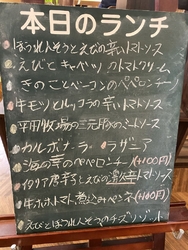 本日のランチ
ほうれんそうとえびの辛いトマトソース
えびとキャベツのトマトクリーム
きのことベーコンのペペロンチーノ
牛モツとルッコラの辛いトマトソース
平田牧場の三元豚のミートソース
カルボナーラ・ラザニア
海の幸のペペロンチーノ(+100円)
イタリア唐辛子の激辛トマトソース
牛ホホトマト煮込みペンネ(+100円)
えびとほうれんそうのチーズリゾット